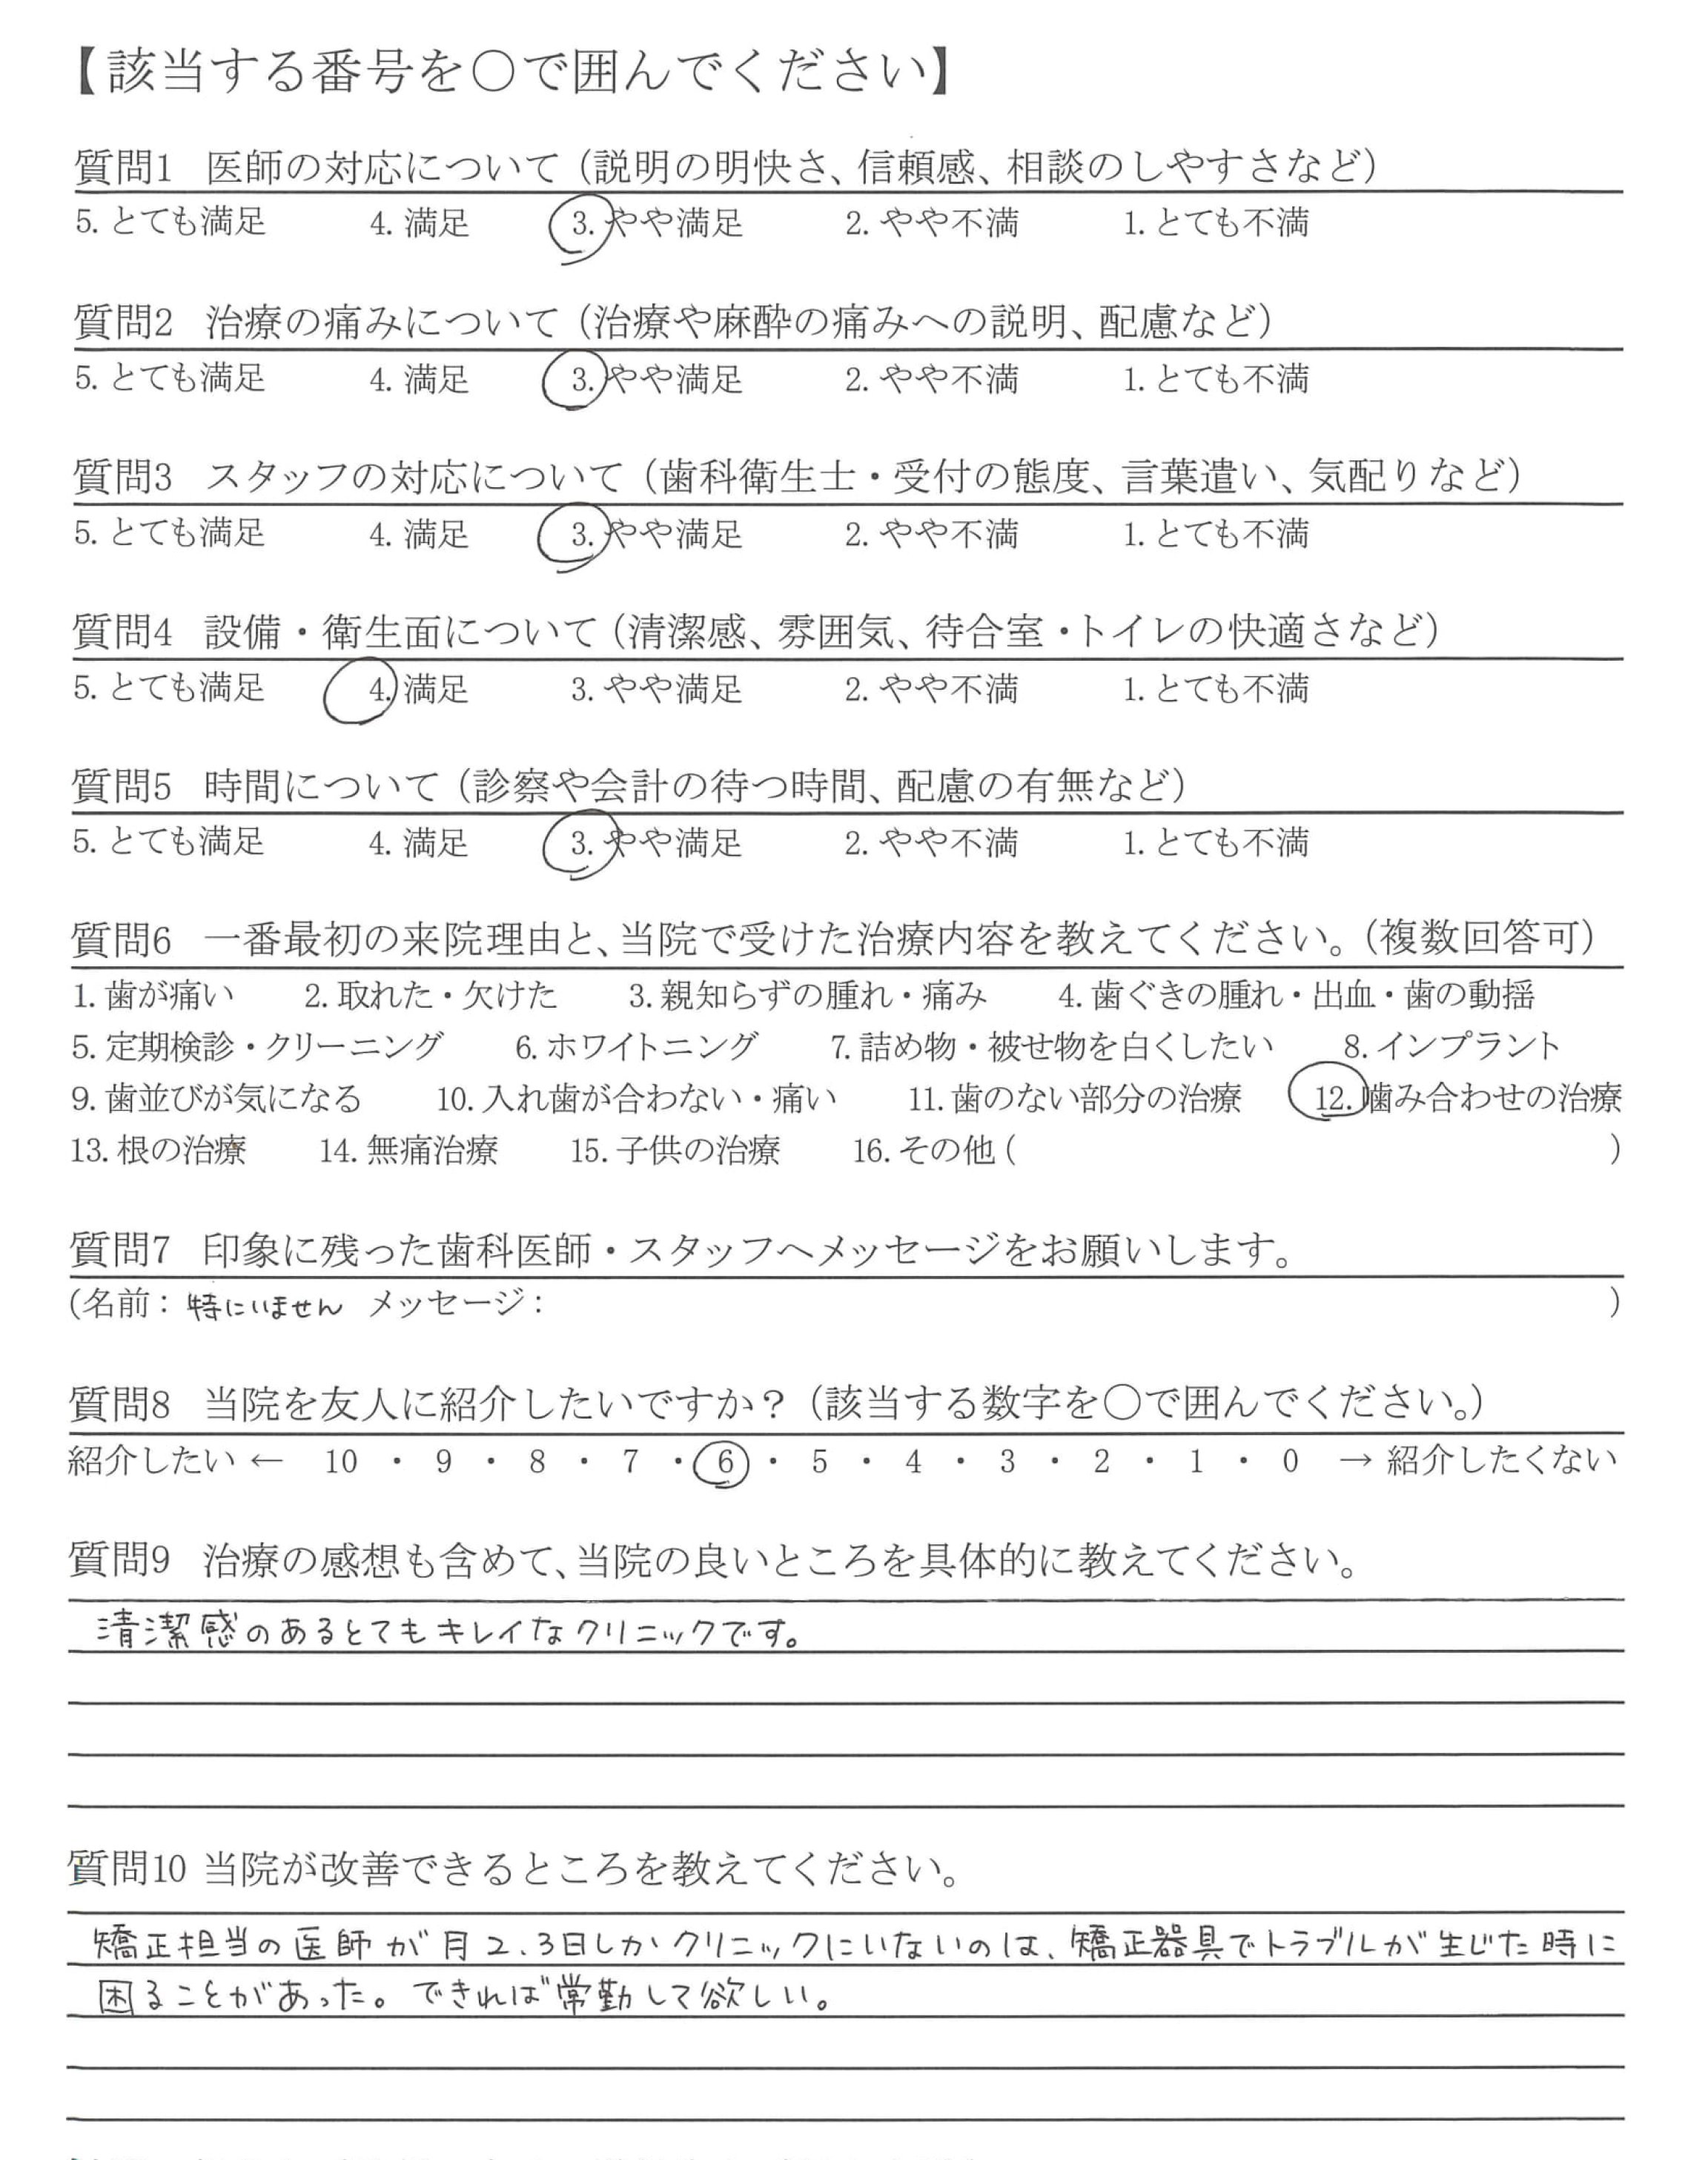 【該当する番号を〇で囲んでください】
質問1 医師の対応について（説明の明快さ、信頼感、相談のしやすさなど）
5. とても満足 4. 満足 3. やや満足 2. やや不満 1. とても不満
質問2 治療の痛みについて（治療や麻酔の痛みへの説明、配慮など）
5. とても満足 4. 満足 3. やや満足 2. やや不満 1. とても不満
質問3 スタッフの対応について（歯科衛生士・受付の態度、言葉遣い、気配りなど）
5. とても満足 4. 満足 3. やや満足 2. やや不満 1. とても不満
質問4 設備・衛生面について（清潔感、雰囲気、待合室・トイレの快適さなど）
5. とても満足 4. 満足 3. やや満足 2. やや不満 1. とても不満
質問5 時間について（診察や会計の待つ時間、配慮の有無など）
5. とても満足 4. 満足 3. やや満足 2. やや不満 1. とても不満
質問6 一番最初の来院理由と、当院で受けた治療内容を教えてください。（複数回答可）
1. 歯が痛い 2. 取れた・欠けた 3. 親知らずの腫れ・痛み 4. 歯ぐきの腫れ・出血・歯の動揺
5. 定期検診・クリーニング 6. ホワイトニング 7. 詰め物・被せ物を白くしたい 8. インプラント
9. 歯並びが気になる 10. 入れ歯が合わない・痛い 11. 歯のない部分の治療 12. 噛み合わせの治療
13. 根の治療 14. 無痛治療 15. 子供の治療 16. その他 ( )
質問7 印象に残った歯科医師・スタッフへメッセージをお願いします。
(名前： 特にいません メッセージ： )
質問8 当院を友人に紹介したいですか？（該当する数字を〇で囲んでください。）
紹介したい ← 10 ・ 9 ・ 8 ・ 7 ・ 6 ・ 5 ・ 4 ・ 3 ・ 2 ・ 1 ・ 0 → 紹介したくない
質問9 治療の感想も含めて、当院の良いところを具体的に教えてください。
清潔感のあるとてもキレイなクリニックです。
質問10 当院が改善できるところを教えてください。
矯正担当の医師が月2、3日しかクリニックにいないのは、矯正器具でトラブルが生じた時に
困ることがあった。できれば常勤して欲しい。